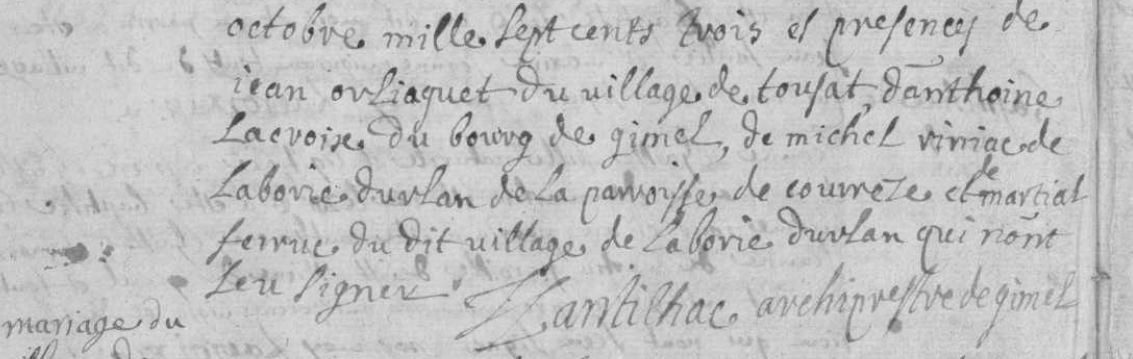 octobre mille sept cents trois es presences de
jean orliaguet du village de tousat, danthoine
Lacroix du bourg de gimel, de michel viniac de
Laborie durlan de la parroisse de courreze et de martial
ferrue du dit village de Laborie durlan qui nont
sceu signer Lantilhac archiprestre de gimel
mariage du